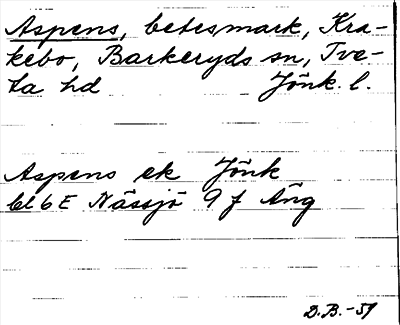 Aspens, betesmark, Kra-
kebo, Barkeryds sn, Tve-
ta hd Jönk. l.
Aspens ek Jönk
bl 6E Nässjö 9 f Äng
D.B.-59